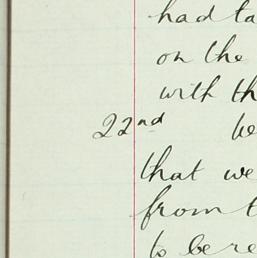 had ta
on the
with th
22nd be
that we
from t
to be re